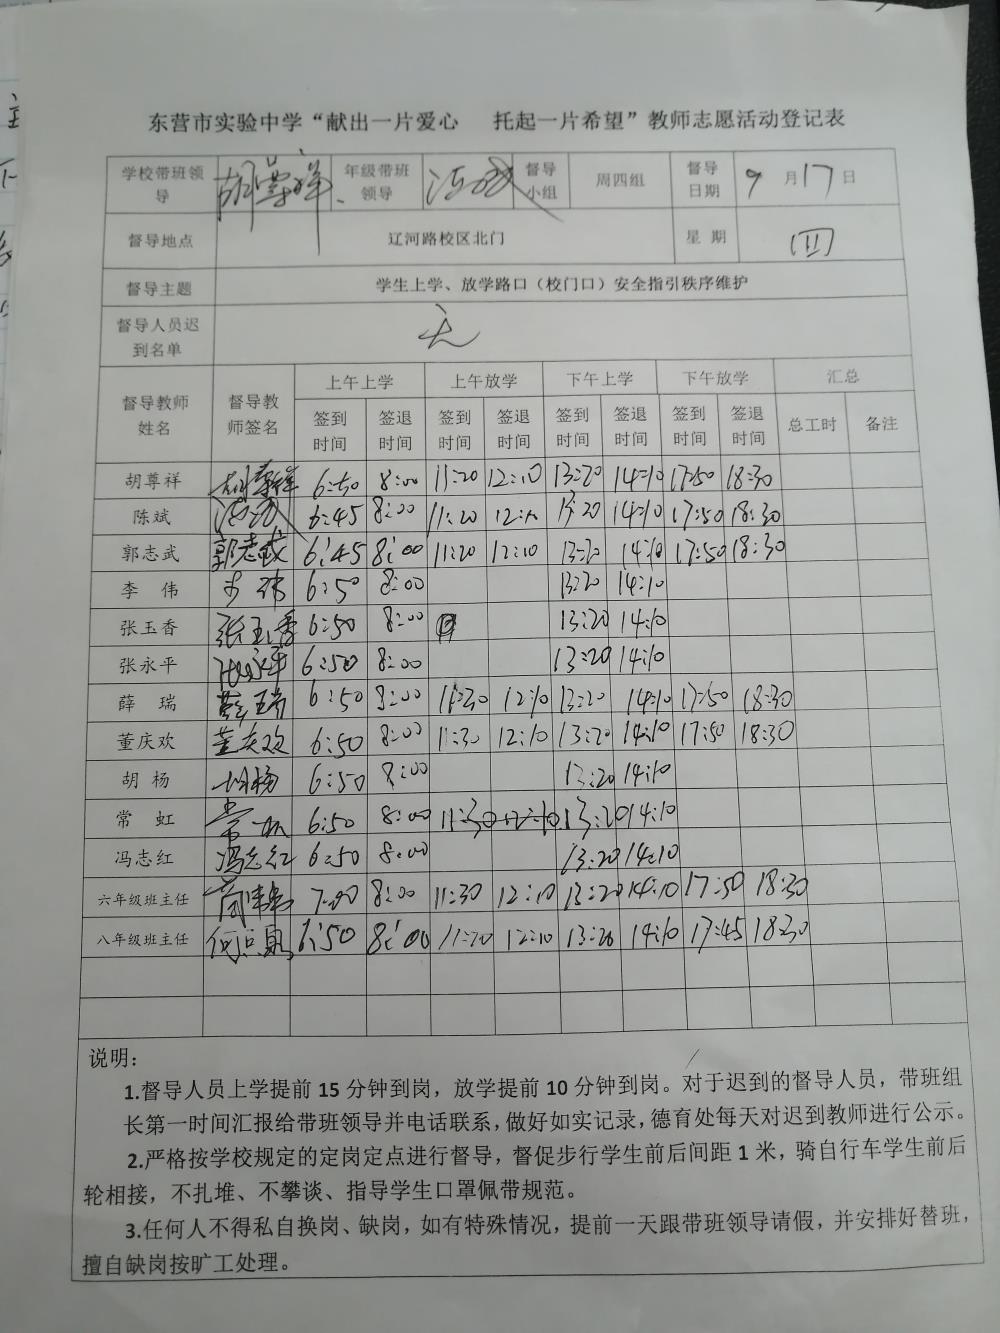 东营市实验中学“献出一片爱心 托起一片希望”教师志愿活动登记表
学校带班领导 胡尊祥 年级带班领导 陈斌 督导小组 周四组 督导日期 9月17日
督导地点 辽河路校区北门 星 期 四
督导主题 学生上学、放学路口（校门口）安全指引秩序维护
督导人员迟到名单 无
督导教师姓名 督导教师签名 上午上学 上午放学 下午上学 下午放学 汇总
签到时间 签退时间 签到时间 签退时间 签到时间 签退时间 签到时间 签退时间 总工时 备注
胡尊祥 胡尊祥 6:50 8:00 11:20 12:10 13:20 14:10 17:50 18:30
陈斌 陈斌 6:45 8:00 11:20 13:20 14:10 17:50 18:30
郭志武 郭志武 6:45 8:00 11:20 12:10 13:20 14:10 17:50 18:30
李 伟 李伟 6:50 8:00 13:20 14:10
张玉香 张玉香 6:50 8:00 13:20 14:10
张永平 张永平 6:50 8:00 13:20 14:10
薛 瑞 薛瑞 6:50 8:00 11:30 12:10 13:20 14:10 17:50 18:30
董庆欢 董庆欢 6:50 8:00 11:30 12:10 13:20 14:10 17:50 18:30
胡 杨 胡杨 6:50 8:00 13:20 14:10
常 虹 常虹 6:50 8:00 11:30 12:10 13:20 14:10
冯志红 冯志红 6:50 8:00 13:20 14:10
六年级班主任 7:00 8:00 11:30 12:10 13:20 14:10 17:50 18:30
八年级班主任 6:50 8:00 11:20 12:10 13:20 14:10 17:45 18:30
说明：
1.督导人员上学提前 15 分钟到岗，放学提前 10 分钟到岗。对于迟到的督导人员，带班组
长第一时间汇报给带班领导并电话联系，做好如实记录，德育处每天对迟到教师进行公示。
2.严格按学校规定的定岗定点进行督导，督促步行学生前后间距 1 米，骑自行车学生前后
轮相接，不扎堆、不攀谈、指导学生口罩佩带规范。
3.任何人不得私自换岗、缺岗，如有特殊情况，提前一天跟带班领导请假，并安排好替班，
擅自缺岗按旷工处理。